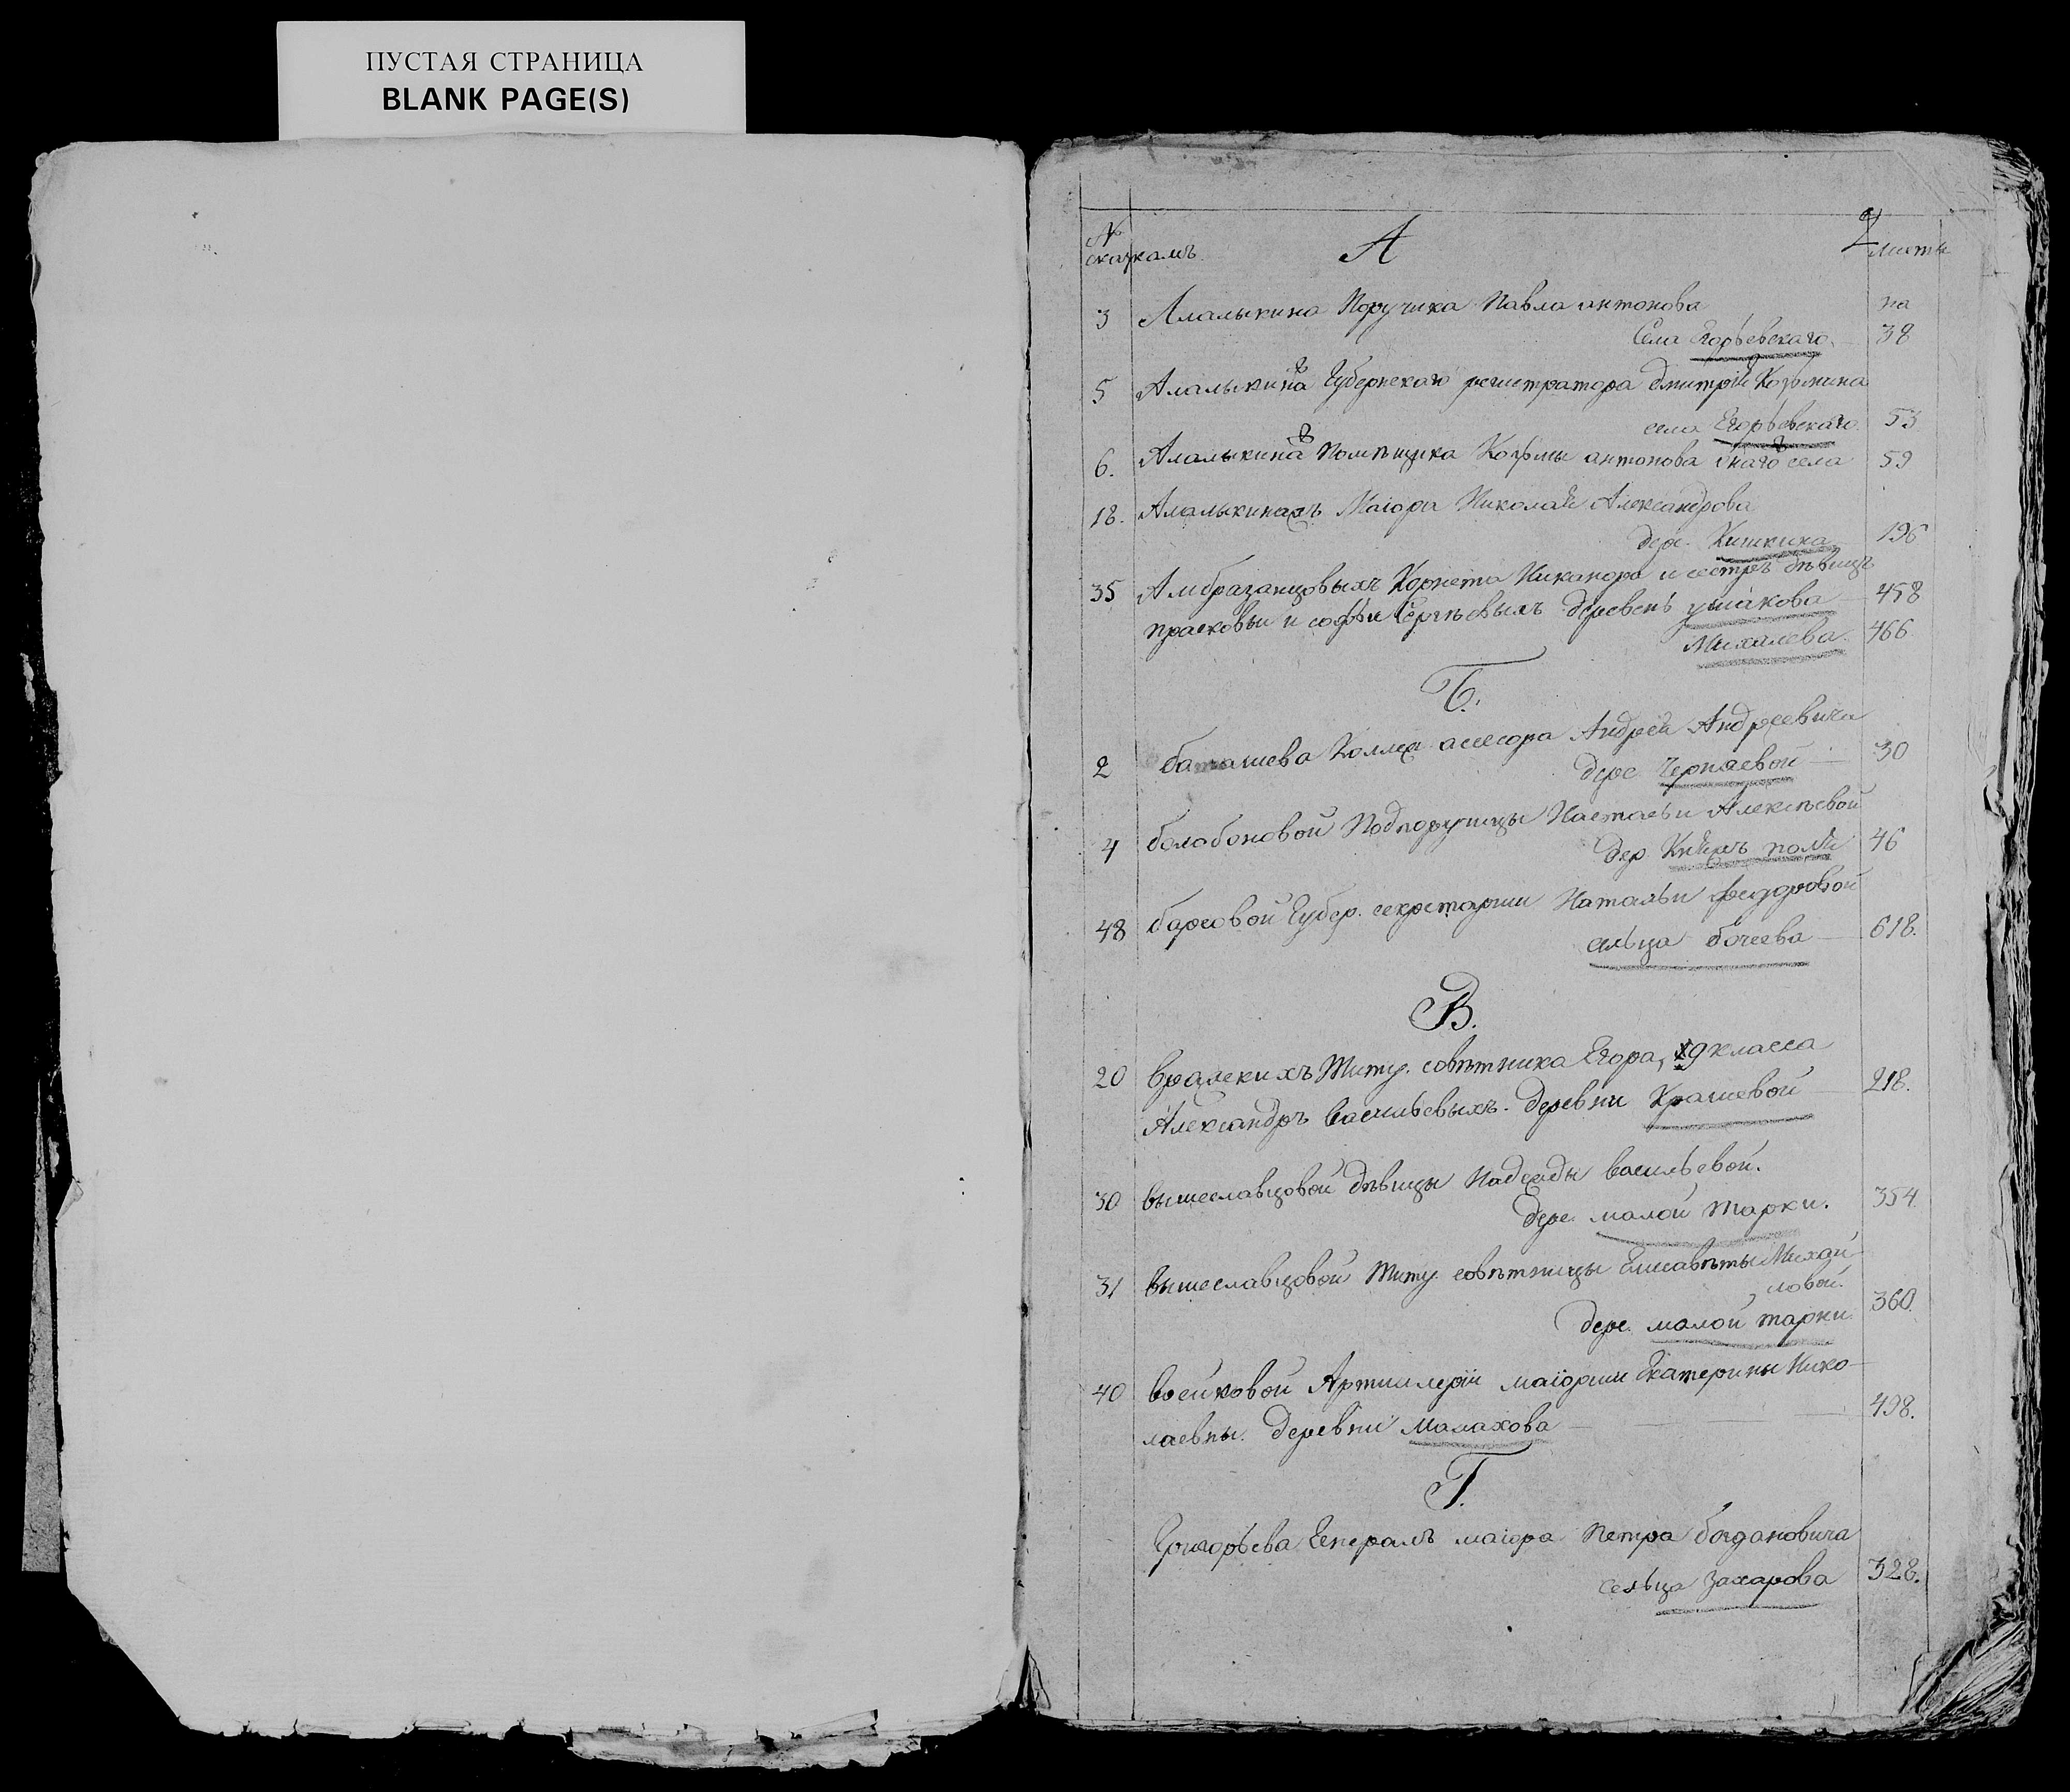 ПУСТАЯ СТРАНИЦА
BLANK PAGE(S)
2
№ сказкамъ А листы
3 Алалыкина Поручика Павла антонова на
Села Егорьевскаго 38
5 Алалыкина Губернскаго регистратора дмитрія Козмина
села Егорьевскаго 53
6. Алалыкина Помѣщика Козмы антонова онаго села 59
18. Алалыкинахъ Маіора Николая Александрова
дере. Кишкина 196
35 Амбразанцовыхъ Корнета Никанора и сестръ дѣвицъ
прасковьи и софьи Сергѣевыхъ деревень ушакова 458
Михалева 466
Б.
2 баташева Коллеж. асессора Андрея Андреевича
дере Чернаевой 30
4 болобоновой Подпоручицы Настасьи Алексѣевой
дер. поля 46
48 барсовой Губер. секретарши Натальи федоровой
сельца бочеева 618.
В.
20 вралскихъ Титу. совѣтника Егора, 9 класса
Александръ васильевыхъ. деревни Крашевой 218.
30 вышеславцовой дѣвицы Надежды васильевой.
дере. малой тарки. 354.
31 вышеславцовой Титу. совѣтницы Елисавѣты Михай
ловой.
дере. малой тарки 360.
40 воейковой Артиллеріи маіорши Екатерины Нико-
лаевны. деревни малахова 498.
Г.
Григорьева Генералъ маіора Петра богдановича
сельца захарова 328.